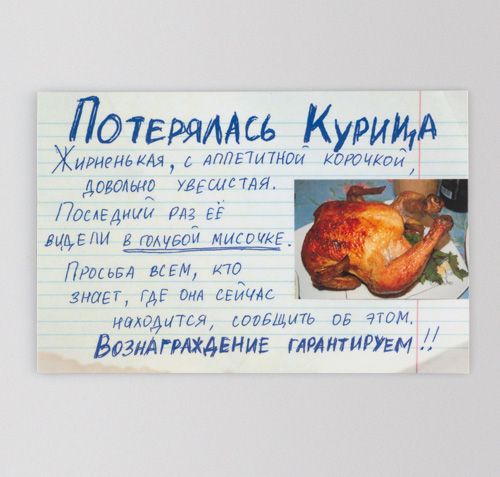 Потерялась Курица
Жирненькая, с аппетитной корочкой,
довольно увесистая.
Последний раз её
видели в голубой мисочке.
Просьба всем, кто
знает, где она сейчас
находится, сообщить об этом.
Вознаграждение гарантируем!!